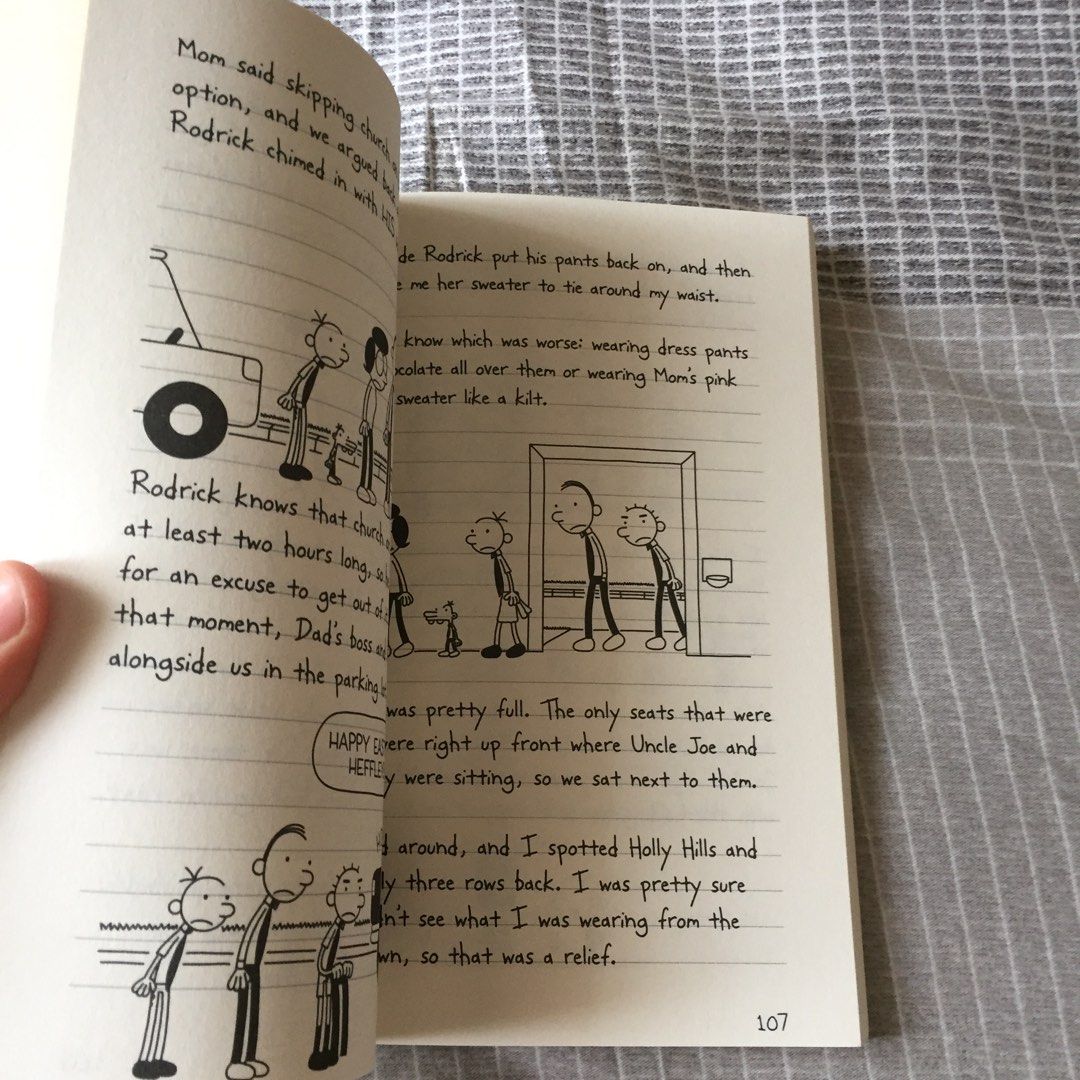 Mom said skipping church
option, and we argued
Rodrick chimed in with
Rodrick knows that church
at least two hours long, so
for an excuse to get out of
that moment, Dad's boss
alongside us in the parking
HAPPY
HEFFLE
de Rodrick put his pants back on, and then
e me her sweater to tie around my waist.
know which was worse: wearing dress pants
ocolate all over them or wearing Mom's pink
sweater like a kilt.
was pretty full. The only seats that were
were right up front where Uncle Joe and
y were sitting, so we sat next to them.
d around, and I spotted Holly Hills and
ly three rows back. I was pretty sure
n't see what I was wearing from the
wn, so that was a relief.
107